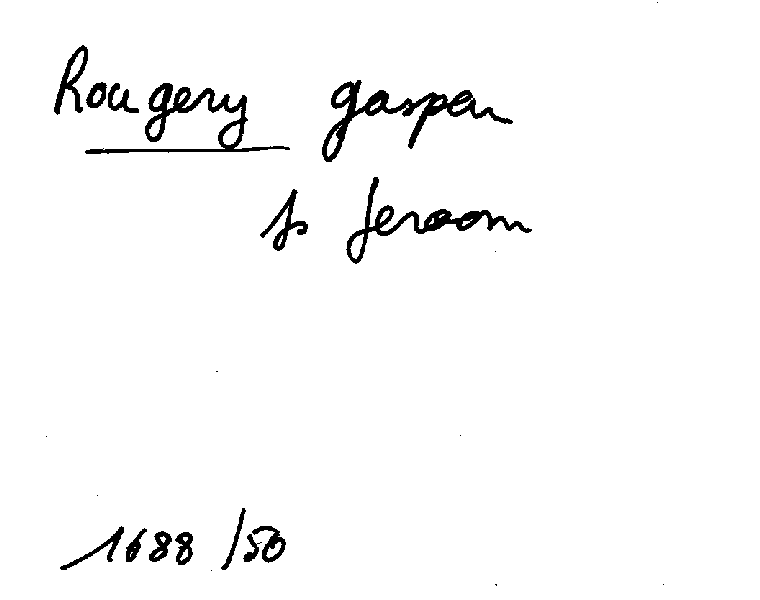 Rougery gasper
fs Jeroom
1688/50